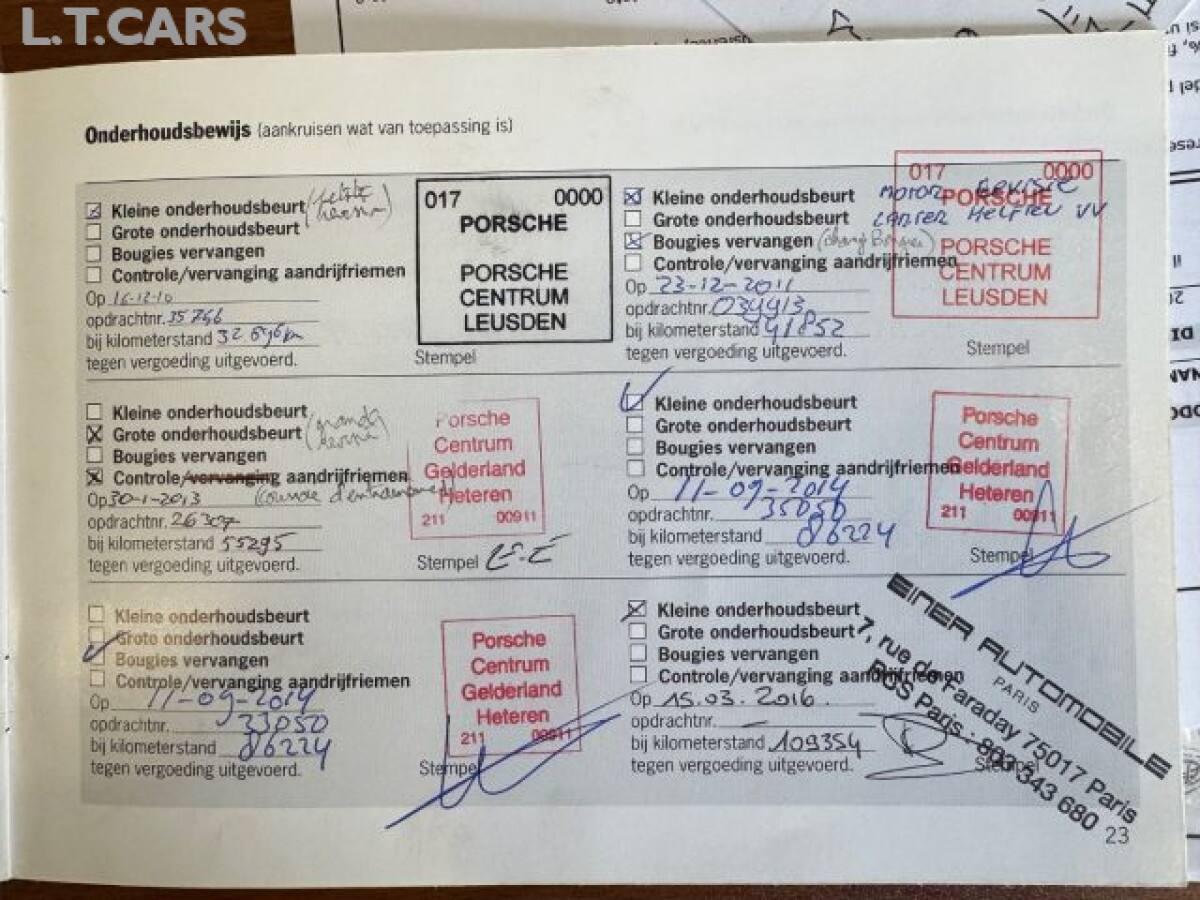 L.T.CARS
Onderhoudsbewijs (aankruisen wat van toepassing is)
Kleine onderhoudsbeurt
Grote onderhoudsbeurt
Bougies vervangen
Controle/vervanging aandrijfriemen
Op 16-12-10
opdrachtnr. 35746
bij kilometerstand 32 696 km
tegen vergoeding uitgevoerd.
017 0000
PORSCHE
PORSCHE
CENTRUM
LEUSDEN
Stempel
Kleine onderhoudsbeurt
Grote onderhoudsbeurt
Bougies vervangen
Controle/vervanging aandrijfriemen
Op 23-12-2011
opdrachtnr. 034913
bij kilometerstand 41852
tegen vergoeding uitgevoerd.
017 0000
MOTOR REVISIE
PORSCHE
VV
PORSCHE
CENTRUM
LEUSDEN
Stempel
Kleine onderhoudsbeurt
Grote onderhoudsbeurt (grande
Bougies vervangen
Controle/vervanging aandrijfriemen
Op 30-1-2013
opdrachtnr. 26307
bij kilometerstand 55295
tegen vergoeding uitgevoerd.
Porsche
Centrum
Gelderland
Heteren
211 00911
Stempel
Kleine onderhoudsbeurt
Grote onderhoudsbeurt
Bougies vervangen
Controle/vervanging aandrijfriemen
Op 11-09-2014
opdrachtnr. 35050
bij kilometerstand 86224
tegen vergoeding uitgevoerd.
Porsche
Centrum
Gelderland
Heteren
211 00911
Stempel
Kleine onderhoudsbeurt
Grote onderhoudsbeurt
Bougies vervangen
Controle/vervanging aandrijfriemen
Op 11-09-2014
opdrachtnr. 33050
bij kilometerstand 86224
tegen vergoeding uitgevoerd.
Porsche
Centrum
Gelderland
Heteren
211 00911
Stempel
Kleine onderhoudsbeurt
Grote onderhoudsbeurt
Bougies vervangen
Controle/vervanging aandrijfriemen
Op 15.03.2016.
opdrachtnr. –
bij kilometerstand 109354
tegen vergoeding uitgevoerd.
EINER AUTOMOBILE
PARIS
7, rue de Faraday 75017 Paris
RCS Paris : 803 343 680
Stempel
23